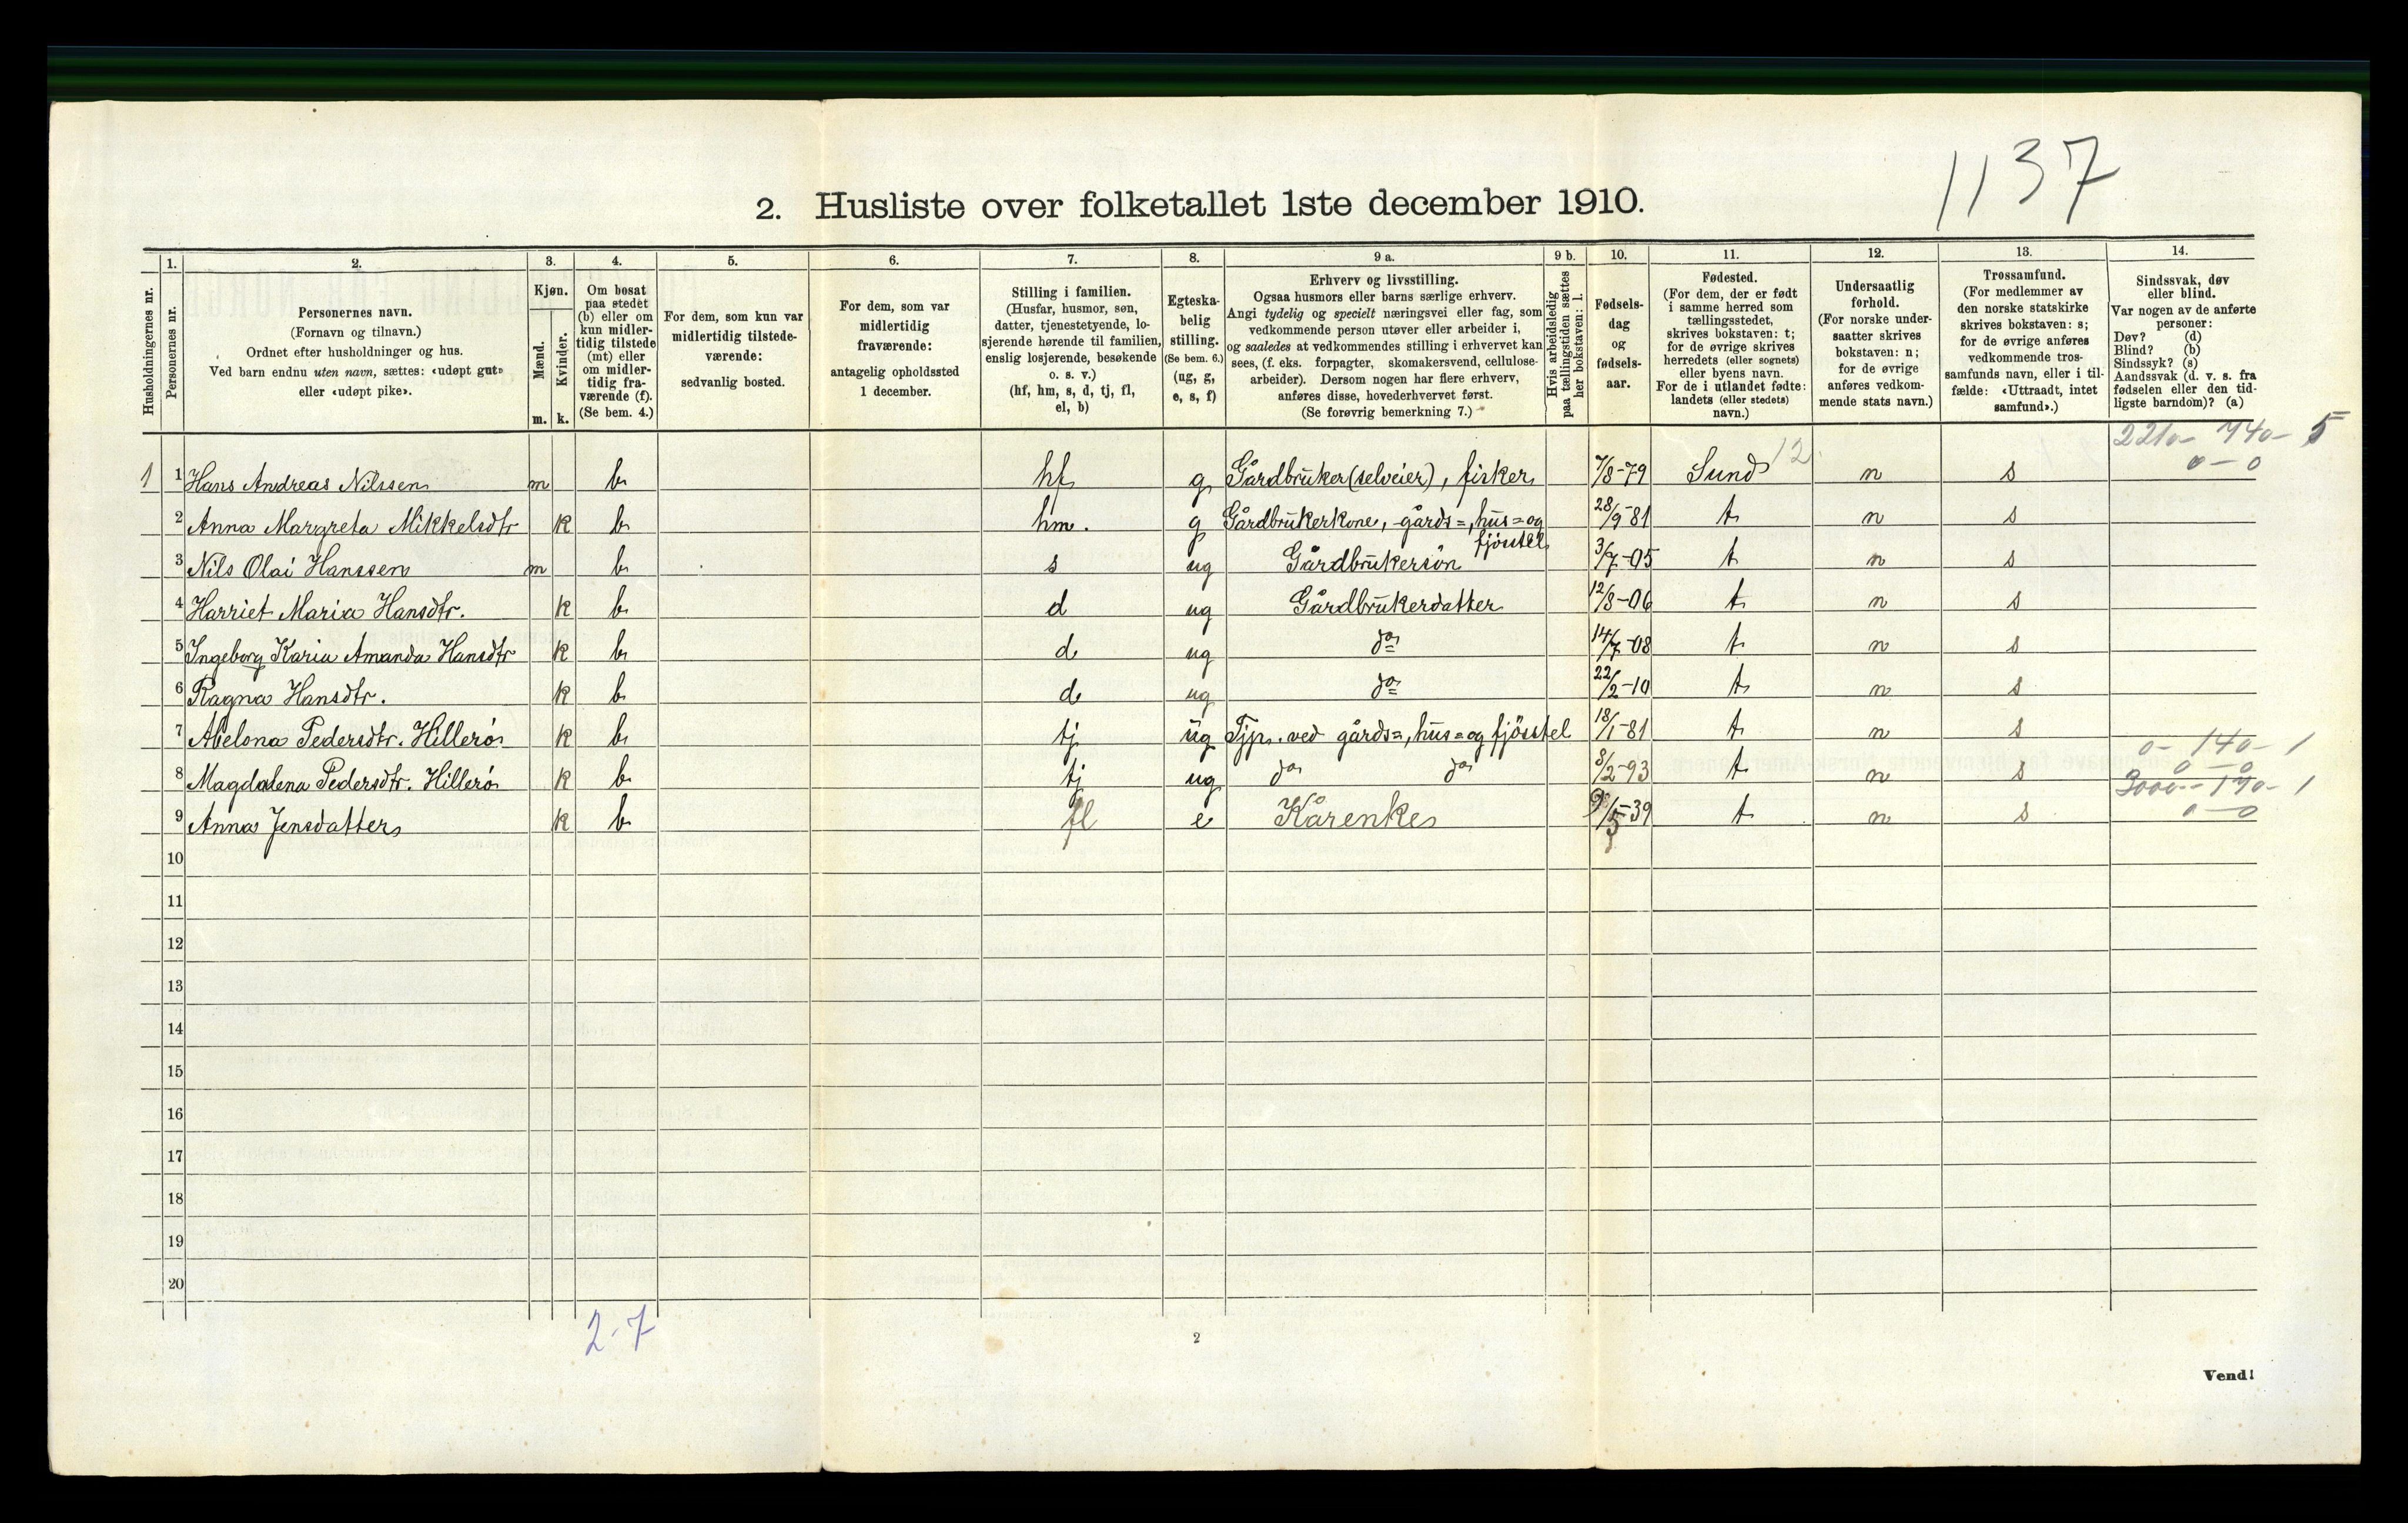 1137
2. Husliste over folketallet 1ste december 1910.
Husholdningernes nr.
1.
Personernes nr.
2.
Personernes navn.
(Fornavn og tilnavn.)
Ordnet efter husholdninger og hus.
Ved barn endnu uten navn, sættes: «udøpt gut»
eller «udøpt pike».
3.
Kjøn.
Mænd.
Kvinder.
m. k.
4.
Om bosat
paa stedet
(b) eller om
kun midler-
tidig tilstede
(mt) eller
om midler-
tidig fra-
værende (f).
(Se bem. 4.)
5.
For dem, som kun var
midlertidig tilstede-
værende:
sedvanlig bosted.
6.
For dem, som var
midlertidig
fraværende:
antagelig opholdssted
1 december.
7.
Stilling i familien.
(Husfar, husmor, søn,
datter, tjenestetyende, lo-
sjerende hørende til familien,
enslig losjerende, besøkende
o. s. v.)
(hf, hm, s, d, tj, fl,
el, b)
8.
Egteska-
belig
stilling.
(Se bem. 6.)
(ug, g,
e, s, f)
9 a.
Erhverv og livsstilling.
Ogsaa husmors eller barns særlige erhverv.
Angi tydelig og specielt næringsvei eller fag, som
vedkommende person utøver eller arbeider i,
og saaledes at vedkommendes stilling i erhvervet kan
sees, (f. eks. forpagter, skomakersvend, cellulose-
arbeider). Dersom nogen har flere erhverv,
anføres disse, hovederhvervet først.
(Se forøvrig bemerkning 7.)
9 b.
Hvis arbeidsledig
paa tællingstiden sættes
her bokstaven: l.
10.
Fødsels-
dag
og
fødsels-
aar.
11.
Fødested.
(For dem, der er født
i samme herred som
tællingsstedet,
skrives bokstaven: t;
for de øvrige skrives
herredets (eller sognets)
eller byens navn.
For de i utlandet fødte:
landets (eller stedets)
navn.)
12.
Undersaatlig
forhold.
(For norske under-
saatter skrives
bokstaven: n;
for de øvrige
anføres vedkom-
mende stats navn.)
13.
Trossamfund.
(For medlemmer av
den norske statskirke
skrives bokstaven: s;
for de øvrige anføres
vedkommende tros-
samfunds navn, eller i til-
fælde: «Uttraadt, intet
samfund».)
14.
Sindssvak, døv
eller blind.
Var nogen av de anførte
personer:
Døv? (d)
Blind? (b)
Sindssyk? (s)
Aandssvak (d. v. s. fra
fødselen eller den tid-
ligste barndom)? (a)
2210- 740- 5
0-0
1 1 Hans Andreas Nilssen m b hf g Gårdbruker (selveier), fisker 7/8-79 Sund 12 n s
2 Anna Margreta Mikkelsdtr k b hm. g Gårdbrukerkone, gårds=, hus= og fjösstel 28/9-81 t n s
3 Nils Olai Hanssen m b s ug Gårdbrukersön 3/7-05 t n s
4 Harriet Maria Hansdtr. k b d ug Gårdbrukerdatter 12/8-06 t n s
5 Ingeborg Karia Amanda Hansdtr k b d ug do 14/7-08 t n s
6 Ragna Hansdtr. k b d ug do 22/2-10 t n s
7 Abelona Pedersdtr. Hillerö k b tj ug Tjp. ved gårds=, hus= og fjösstel 18/1-81 t n s
0- 140- 1
0-0
8 Magdalena Pedersdtr. Hillerö k b tj ug do do 8/2-93 t n s
3000- 170- 1
0-0
9 Anna Jensdatter k b fl e Kårenke 9/5-39 t n s
10
11
12
13
14
15
16
17
18
19
20
2-7
2
Vend!